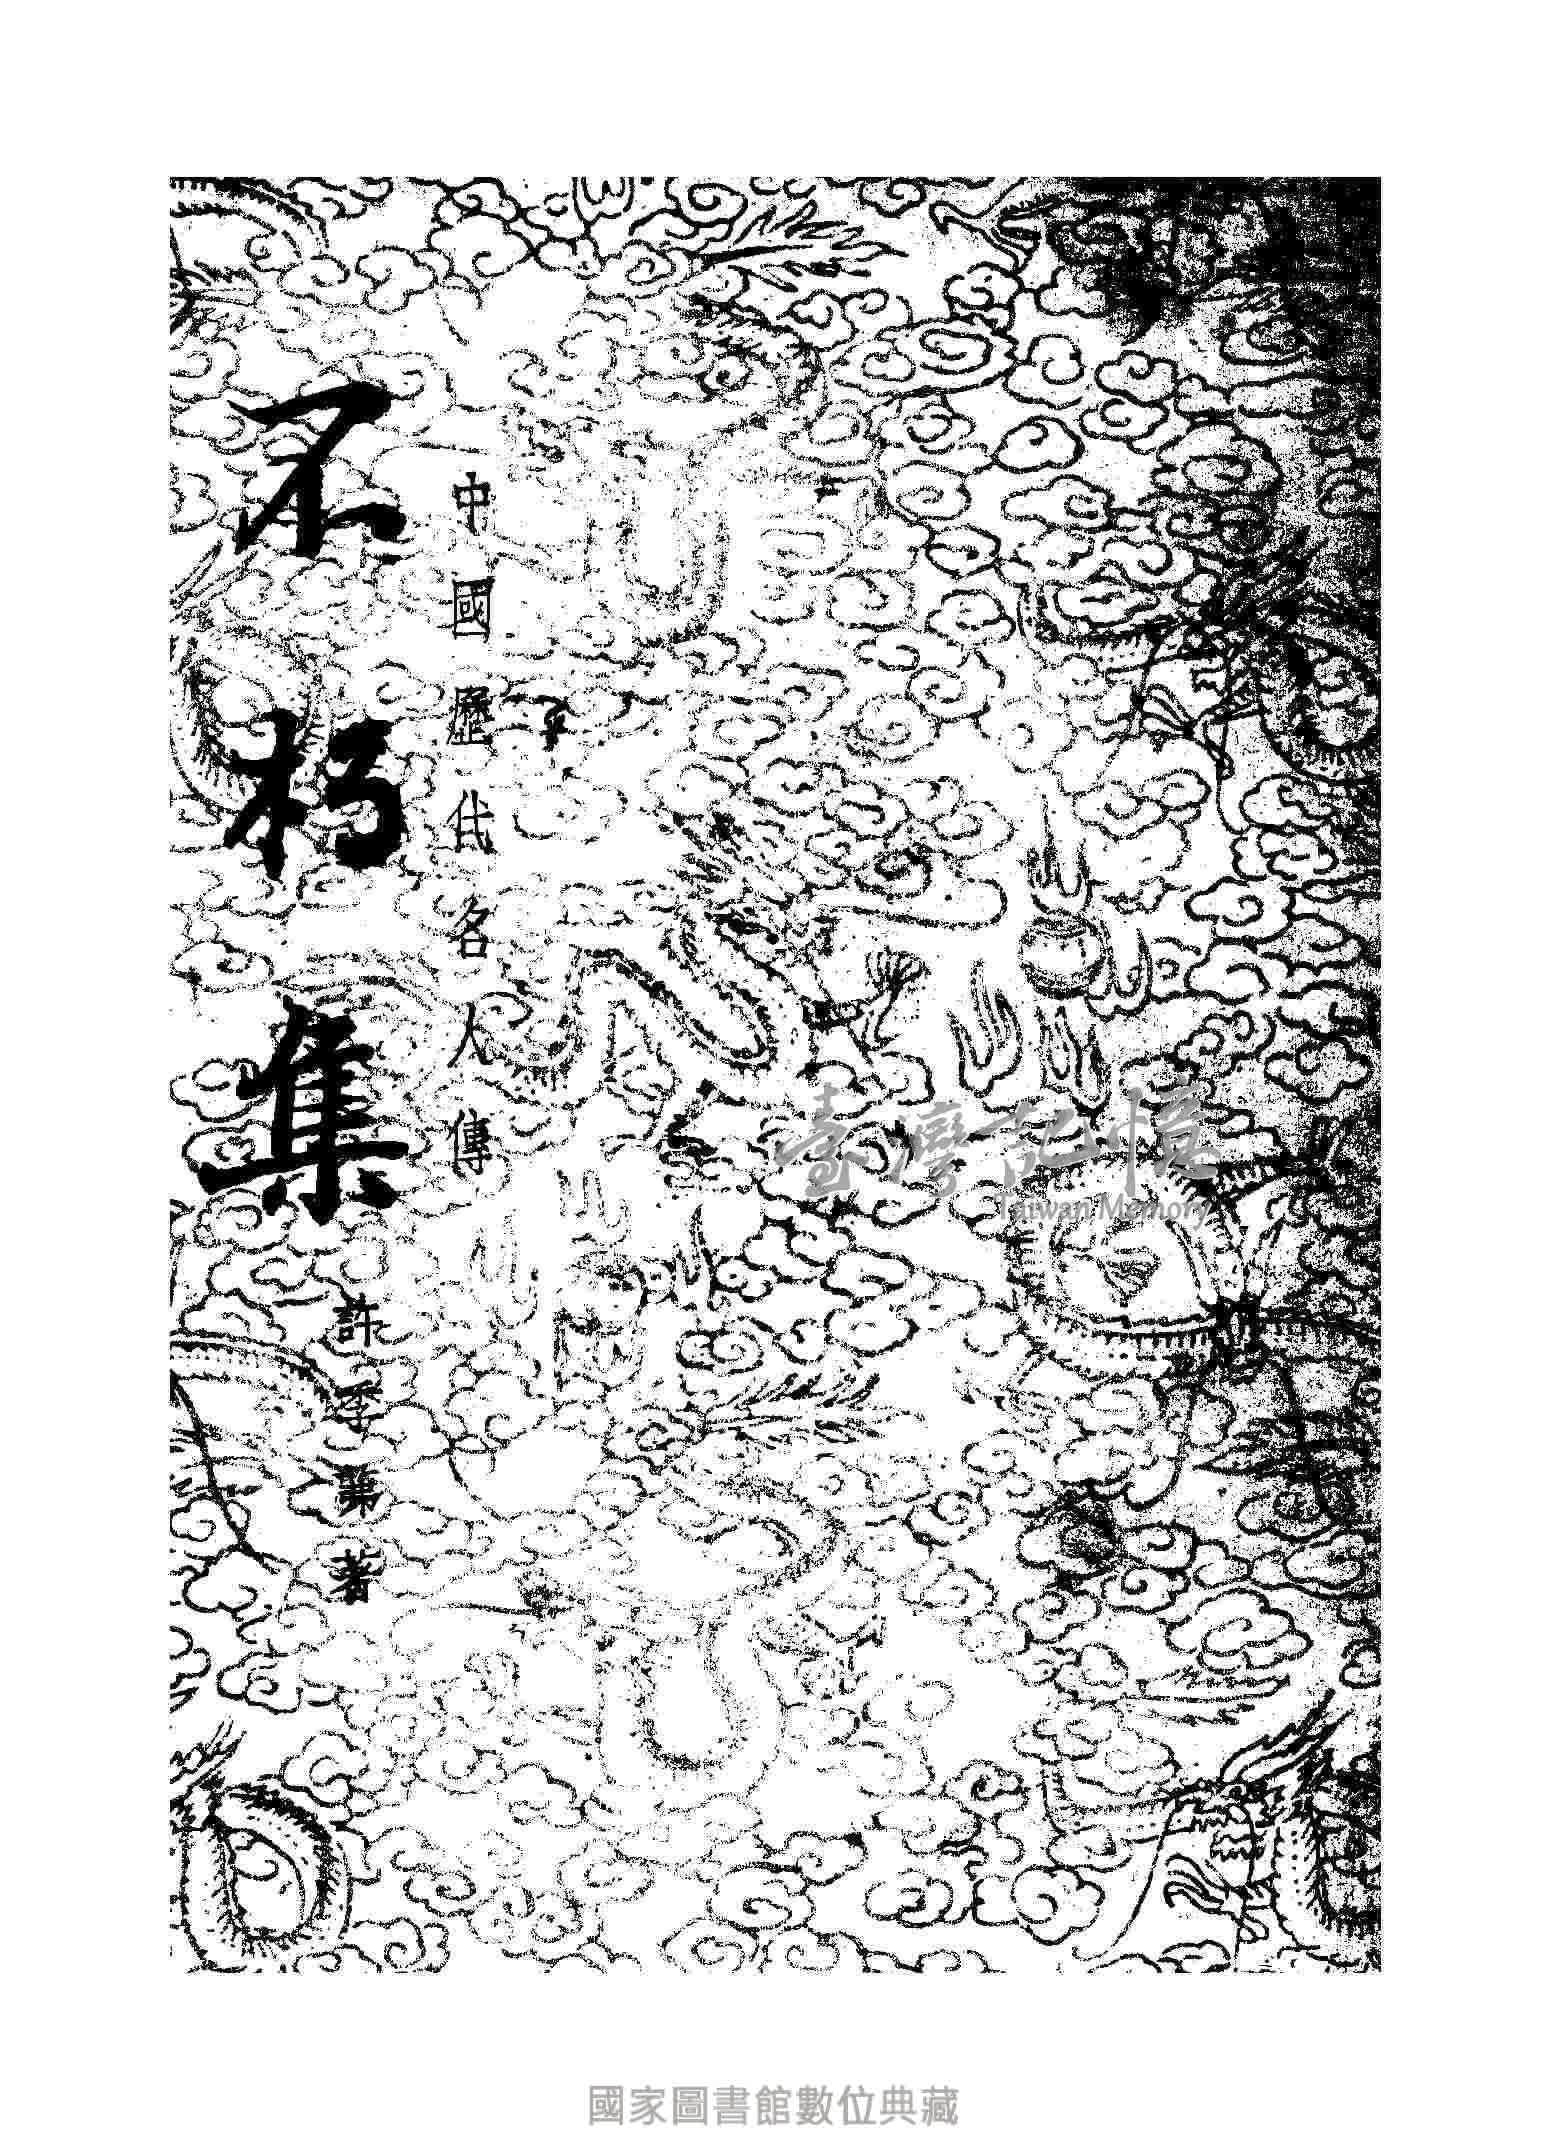 中國歷代名人傳
不朽集
許季第著
臺灣記憶
Taiwan Memory
國家圖書館數位典藏